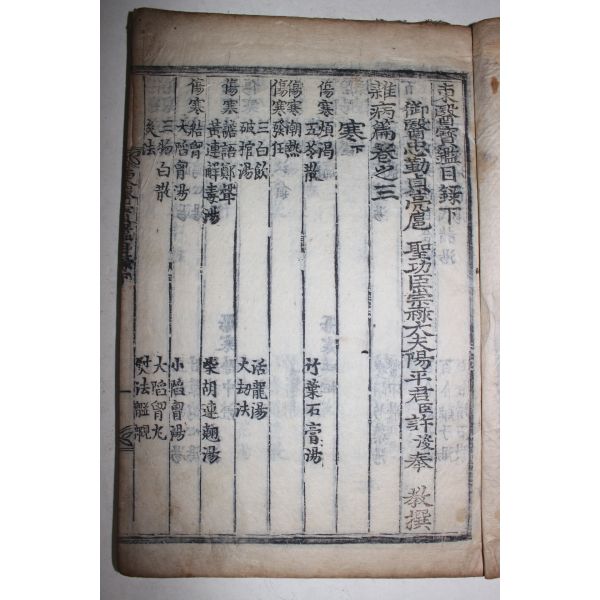 東醫寶鑑目録下
御醫忠勤貞亮扈 聖功臣崇祿大夫陽平君臣許浚奉 教撰
雜病篇卷之三
寒下
傷寒煩渴
五苓散 竹葉石膏湯
傷寒潮熱
傷寒發狂
三白飲 活龍湯
破棺湯 大劫法
傷寒譫語鄭聲
黃連解毒湯 柴胡連翹湯
傷寒結胷
大陷胷湯 小陷胷湯
三物白散 大陷胷丸
灸法 熨法